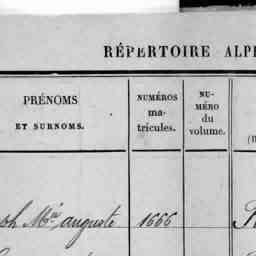 RÉPERTOIRE ALP
PRÉNOMS
ET SURNOMS.
NUMÉROS
ma-
tricules.
NU-
MÉRO
du
volume.
oh Mie auguste 1666